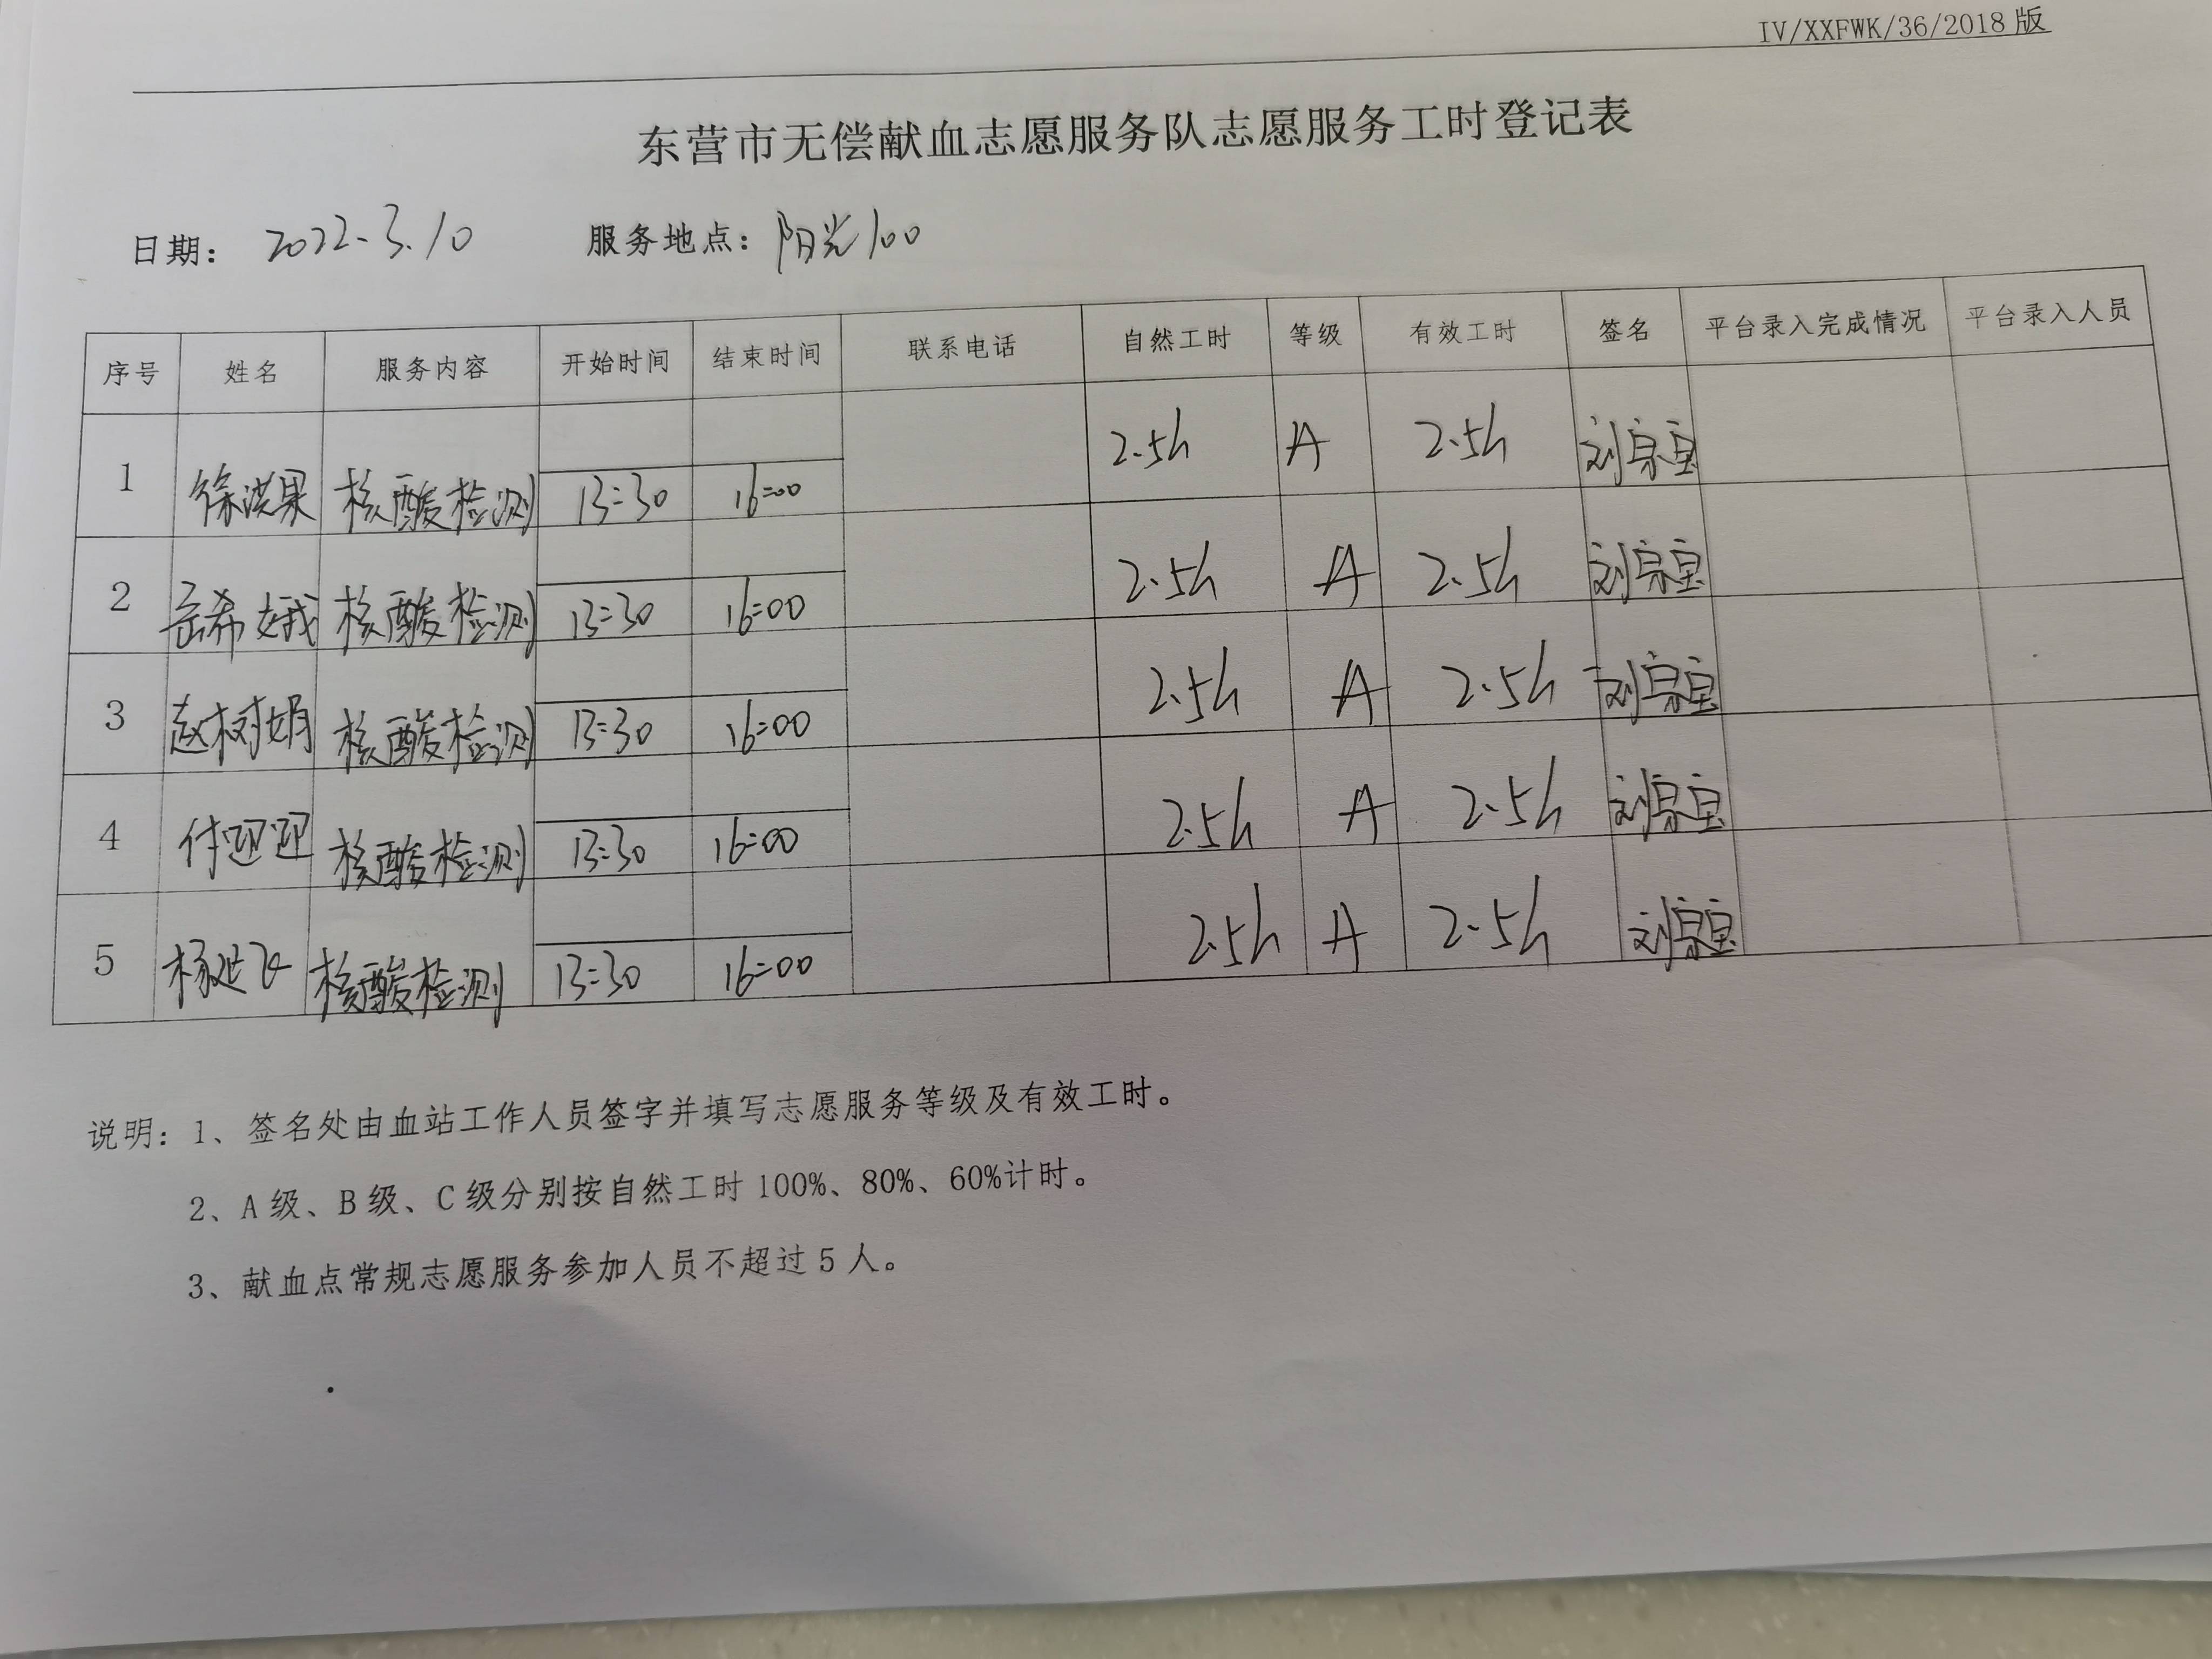 IV/XXFWK/36/2018版
东营市无偿献血志愿服务队志愿服务工时登记表
日期： 2022.3.10 服务地点：阳光100
序号 姓名 服务内容 开始时间 结束时间 联系电话 自然工时 等级 有效工时 签名 平台录入完成情况 平台录入人员
1 徐洪果 核酸检测 13:30 16:00 2.5h A 2.5h 刘宗宝
2 岳希娥 核酸检测 13:30 16:00 2.5h A 2.5h 刘宗宝
3 赵树娟 核酸检测 13:30 16:00 2.5h A 2.5h 刘宗宝
4 付迎迎 核酸检测 13:30 16:00 2.5h A 2.5h 刘宗宝
5 核酸检测 13:30 16:00 2.5h A 2.5h 刘宗宝
说明：1、签名处由血站工作人员签字并填写志愿服务等级及有效工时。
2、A级、B级、C级分别按自然工时100%、80%、60%计时。
3、献血点常规志愿服务参加人员不超过5人。